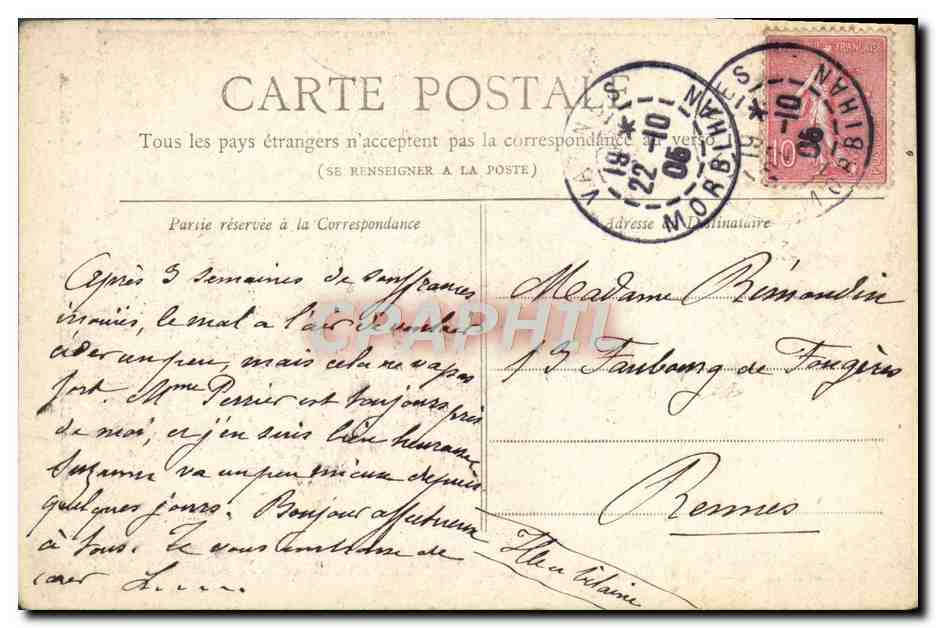 CARTE POSTALE
Tous les pays étrangers n'acceptent pas la correspondance au verso
(SE RENSEIGNER A LA POSTE)
Partie réservée à la Correspondance
Adresse du Destinataire
VANNES
19
22-10
05
MORBIHAN
VANNES
19
-10
05
MORBIHAN
10
CPAPHIL
Après 3 semaines de souffrances
inouïes, le mal a l'air de vouloir
céder un peu, mais cela ne va pas
fort. Mme Perrier est toujours près
de moi, et j'en suis bien heureuse
Suzanne va un peu mieux depuis
quelques jours. Bonjour affectueux
à tous. Je vous embrasse de
cœur L.....
Madame Rémondin
13 Faubourg de Fougères
Rennes
Ille et Vilaine